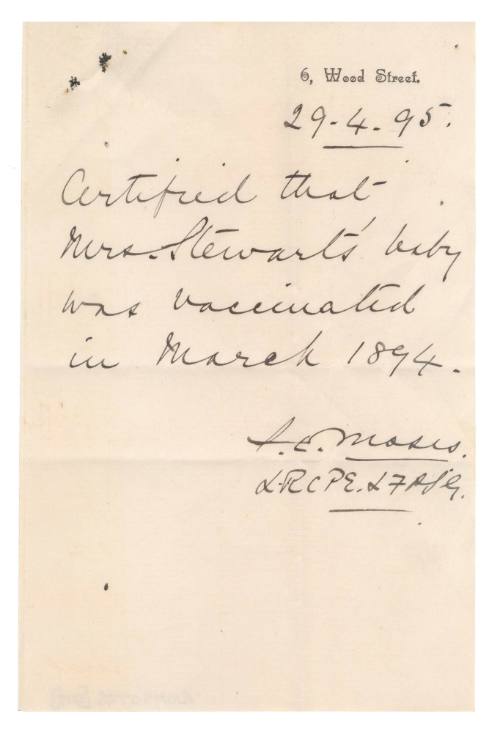 6, Wood Street.
29-4-95.
Certified that
Mrs. Stewart's baby
was vaccinated
in March 1894.
Moses.
LRCPE.